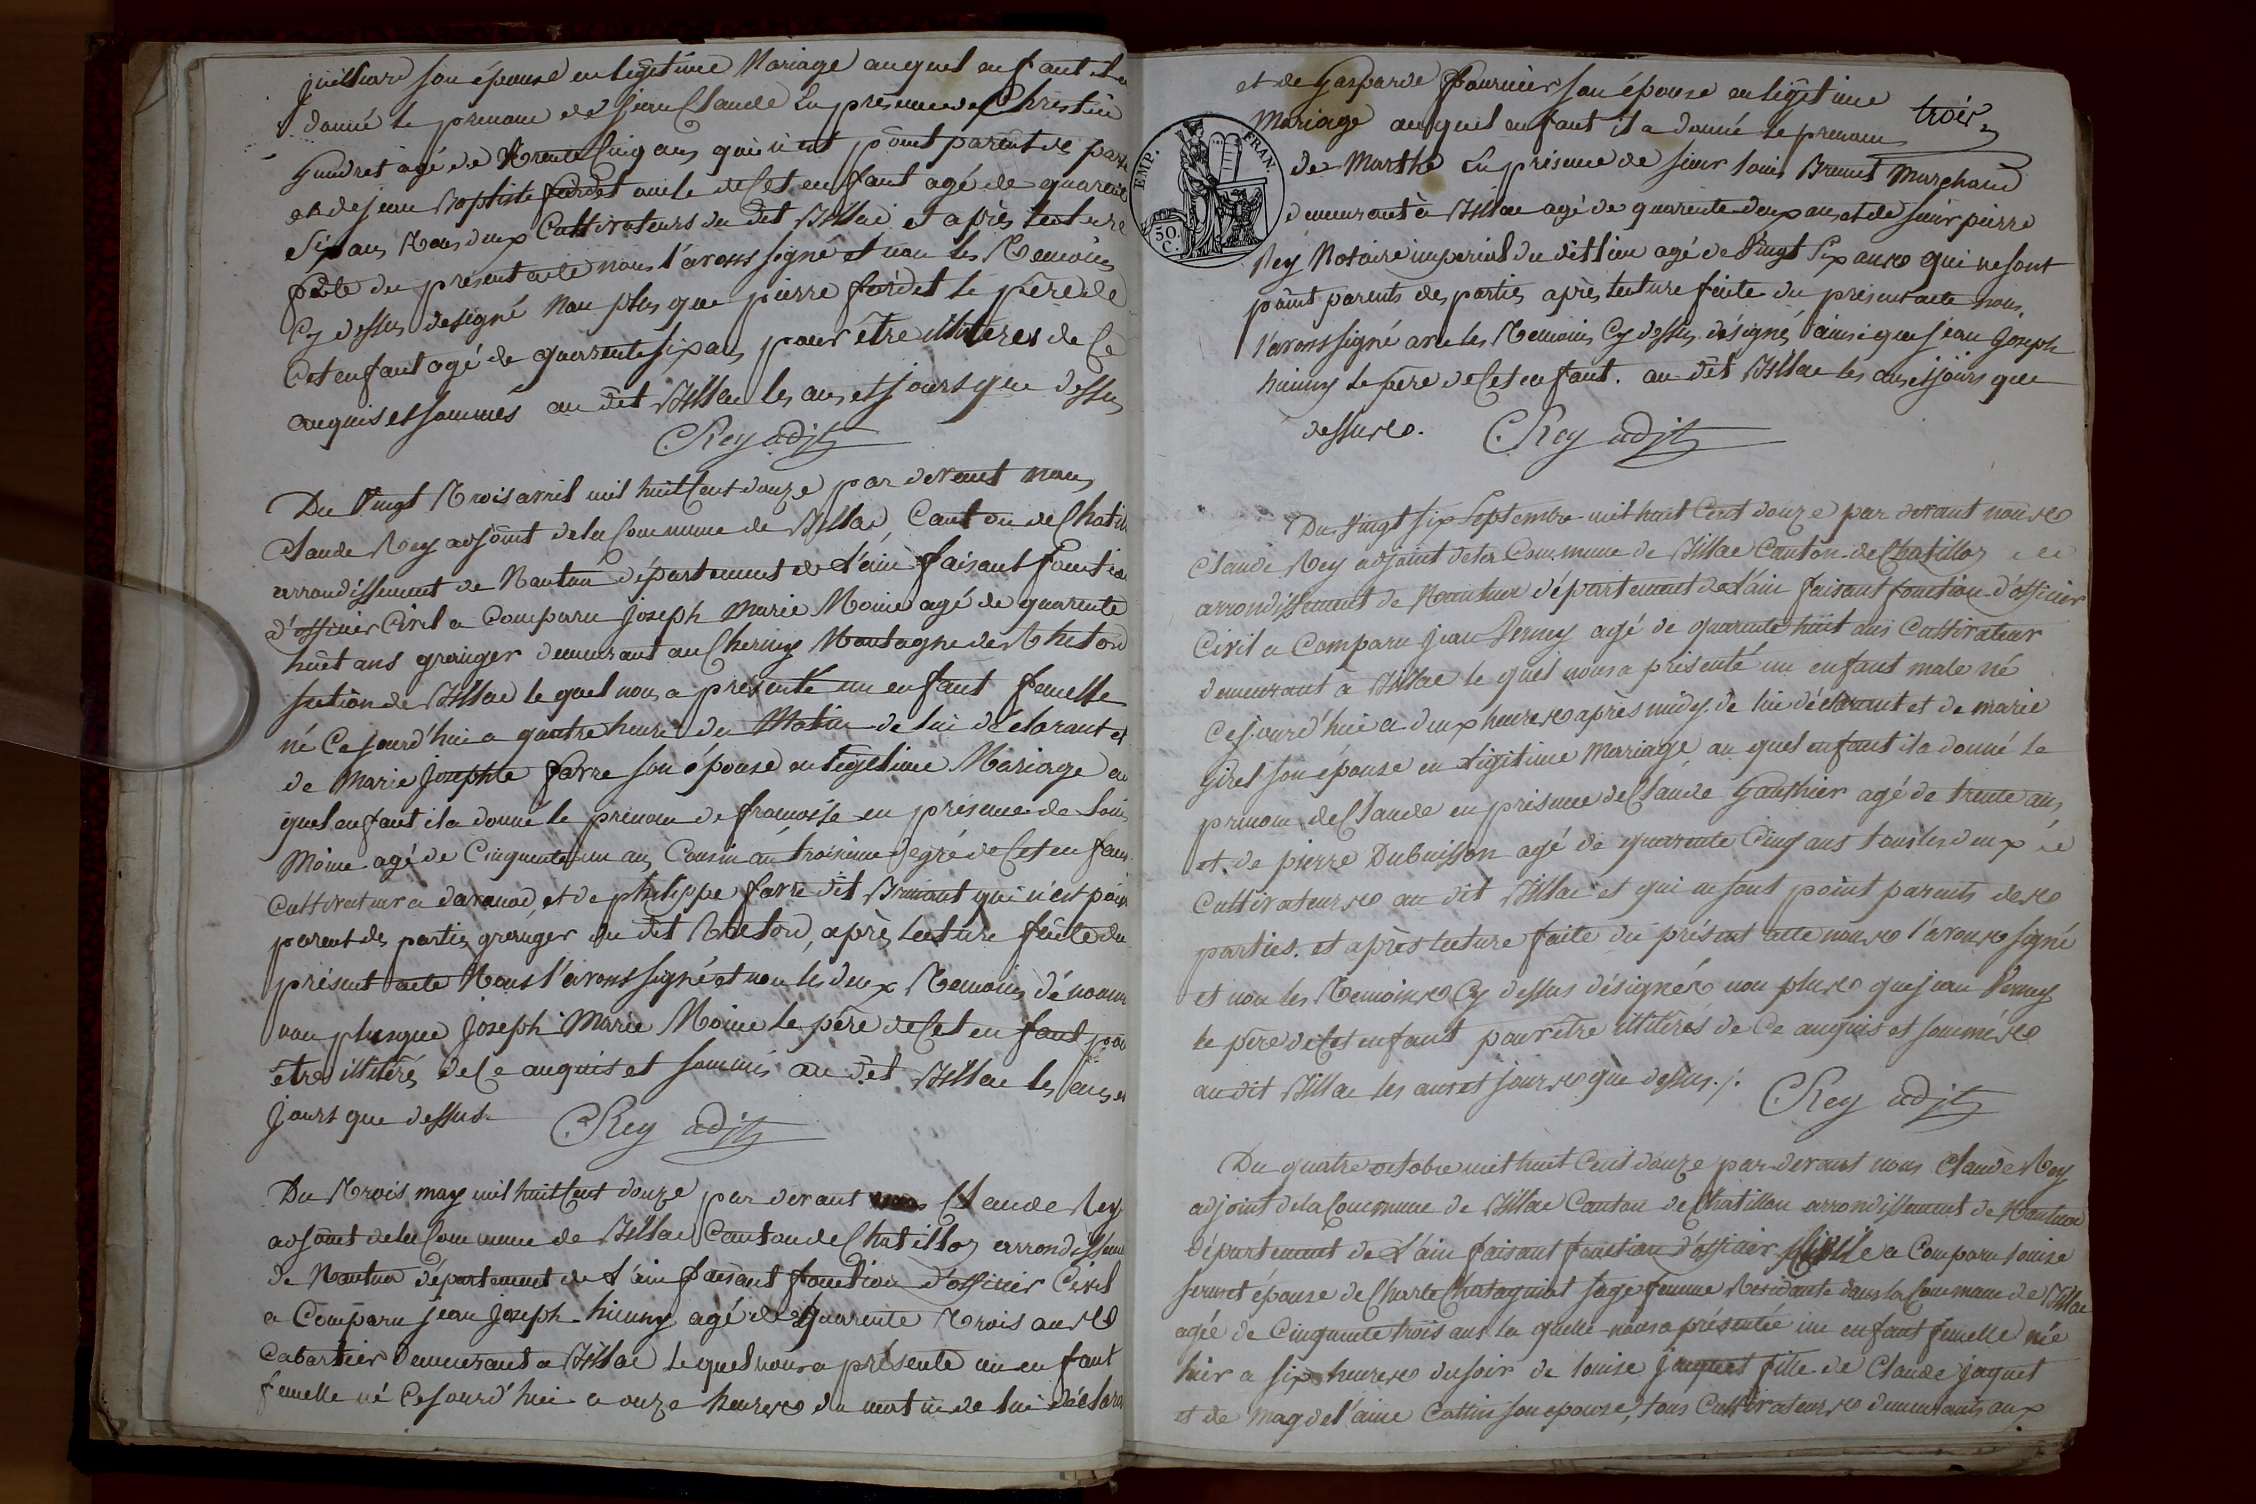 son épouse en légitime Mariage auquel enfant il a
donné le prenom de jean Claude En présence de Christin
Gaudret agé de Trente Cinq ans qui n'est point parent des parti
et de jean Baptiste fardet oncle de Cet enfant agé de quarante
Six ans Tous deux Cultivateurs du dit Billiac et après lecture
faite du présent acte nous l'avons signé et non les Temoins
Cy dessus designé Non plus que pierre fardet le père de
Cet enfant agé de quarente six ans pour être illiteres de Ce
enquis et sommés au dit Billiac les ans et jours que dessus
C. Rey adjt
Du Vingt Trois avril mil huit Cent douze par devant nous
Claude Rey adjoint de la Commune de Billiac, Canton de Chatil
arrondissement de Nantua département de L'ain faisant fonction
d'officier Civil a Comparu Joseph Marie Moine agé de quarente
huit ans granger demeurant au Cherny Montagne de
section de Billiac le quel nous a présenté un enfant femelle
né Ce jourd'hui a quatre heures du Matin de lui déclarant et
de Marie Josephte favre son épouse en légitime Mariage au
quel enfant il a donné le prénom de françoise en présence de Louis
Moine agé de Cinquante un ans Cousin au troisieme degré de Cet enfan
Cultivateur a et de philippe favre dit qui n'est poin
parent des parties granger du dit après lecture faite du
présent acte Nous l'avons signé et non les deux Temoins dénomm
non plus que Joseph Marie Moine le père de Cet enfant pou
être illitérés de Ce enquis et sommés au dit Billiac les ans et
jours que dessus
C. Rey adjt
Du Trois may mil huit Cent douze par devant nous Claude Rey
adjoint de la Commune de Billiac Canton de Chatillon arrondissem
de Nantua département de L'ain faisant fonction d'officier Civil
a Comparu jean joseph humny agé de Quarente Trois ans
Cabartier demeurant a Billiac le quel nous a présenté un enfant
femelle né Ce jourd'hui a onze heures du matin de lui déclara
et de Gasparde fournier son épouse en légitime
trois
Mariage auquel enfant il a donné le prenom
EMP. FRAN.
50. C.
de Marthe En présence de sieur Louis Brunet Marchand
demeurant à Billiac agé de quarente deux ans et de sieur pierre
Rey Notaire imperial du dit lieu agé de Vingt Six ans qui ne sont
point parents des parties après lecture faite du present acte nous
l'avons signé avec les Temoins Cy dessus désigné ainsi que jean Joseph
humny le père de Cet enfant. au dit Billiac les ans et jours que
dessus.
C. Rey adjt
Du Vingt six Septembre mil huit Cent douze par devant nous
Claude Rey adjoint de la Commune de Billiac Canton de Chatillon
arrondissement de Nantua département de L'ain faisant fonction d'officier
Civil a Comparu jean Perney agé de quarente huit ans Cultivateur
demeurant a Billiac le quel nous a présenté un enfant male né
Ce jourd'hui a deux heures après midy de lui déclarant et de marie
Giret son épouse en Légitime Mariage, au quel enfant il a donné le
prenom de Claude en présence de Claude Gauthier agé de trente ans
et de pierre Dubuisson agé de quarente Cinq ans tous les deux
Cultivateurs au dit Billiac et qui ne sont point parents des
parties. et après lecture faite du présent acte nous l'avons signé
et non les Temoins Cy dessus désignés non plus que jean Perney
le père de Cet enfant pour être illitérés de Ce enquis et sommés
au dit Billiac les ans et jours que dessus./.
C. Rey adjt
Du quatre octobre mil huit Cent douze par devant nous Claude Rey
adjoint de la Commune de Billiac Canton de Chatillon arrondissement de Nantua
Département de L'ain faisant fonction d'officier Civille a Comparu Louise
épouse de Charle Chatagniat sage femme Residante dans la Commune de Billiac
agée de Cinquante trois ans la quelle nous a présentée un enfant femelle née
hier a six heures du soir de louise jaquet fille de Claude jaquet
et de Magdelaine Cottin son epouse, tous Cultivateurs demeurants aux